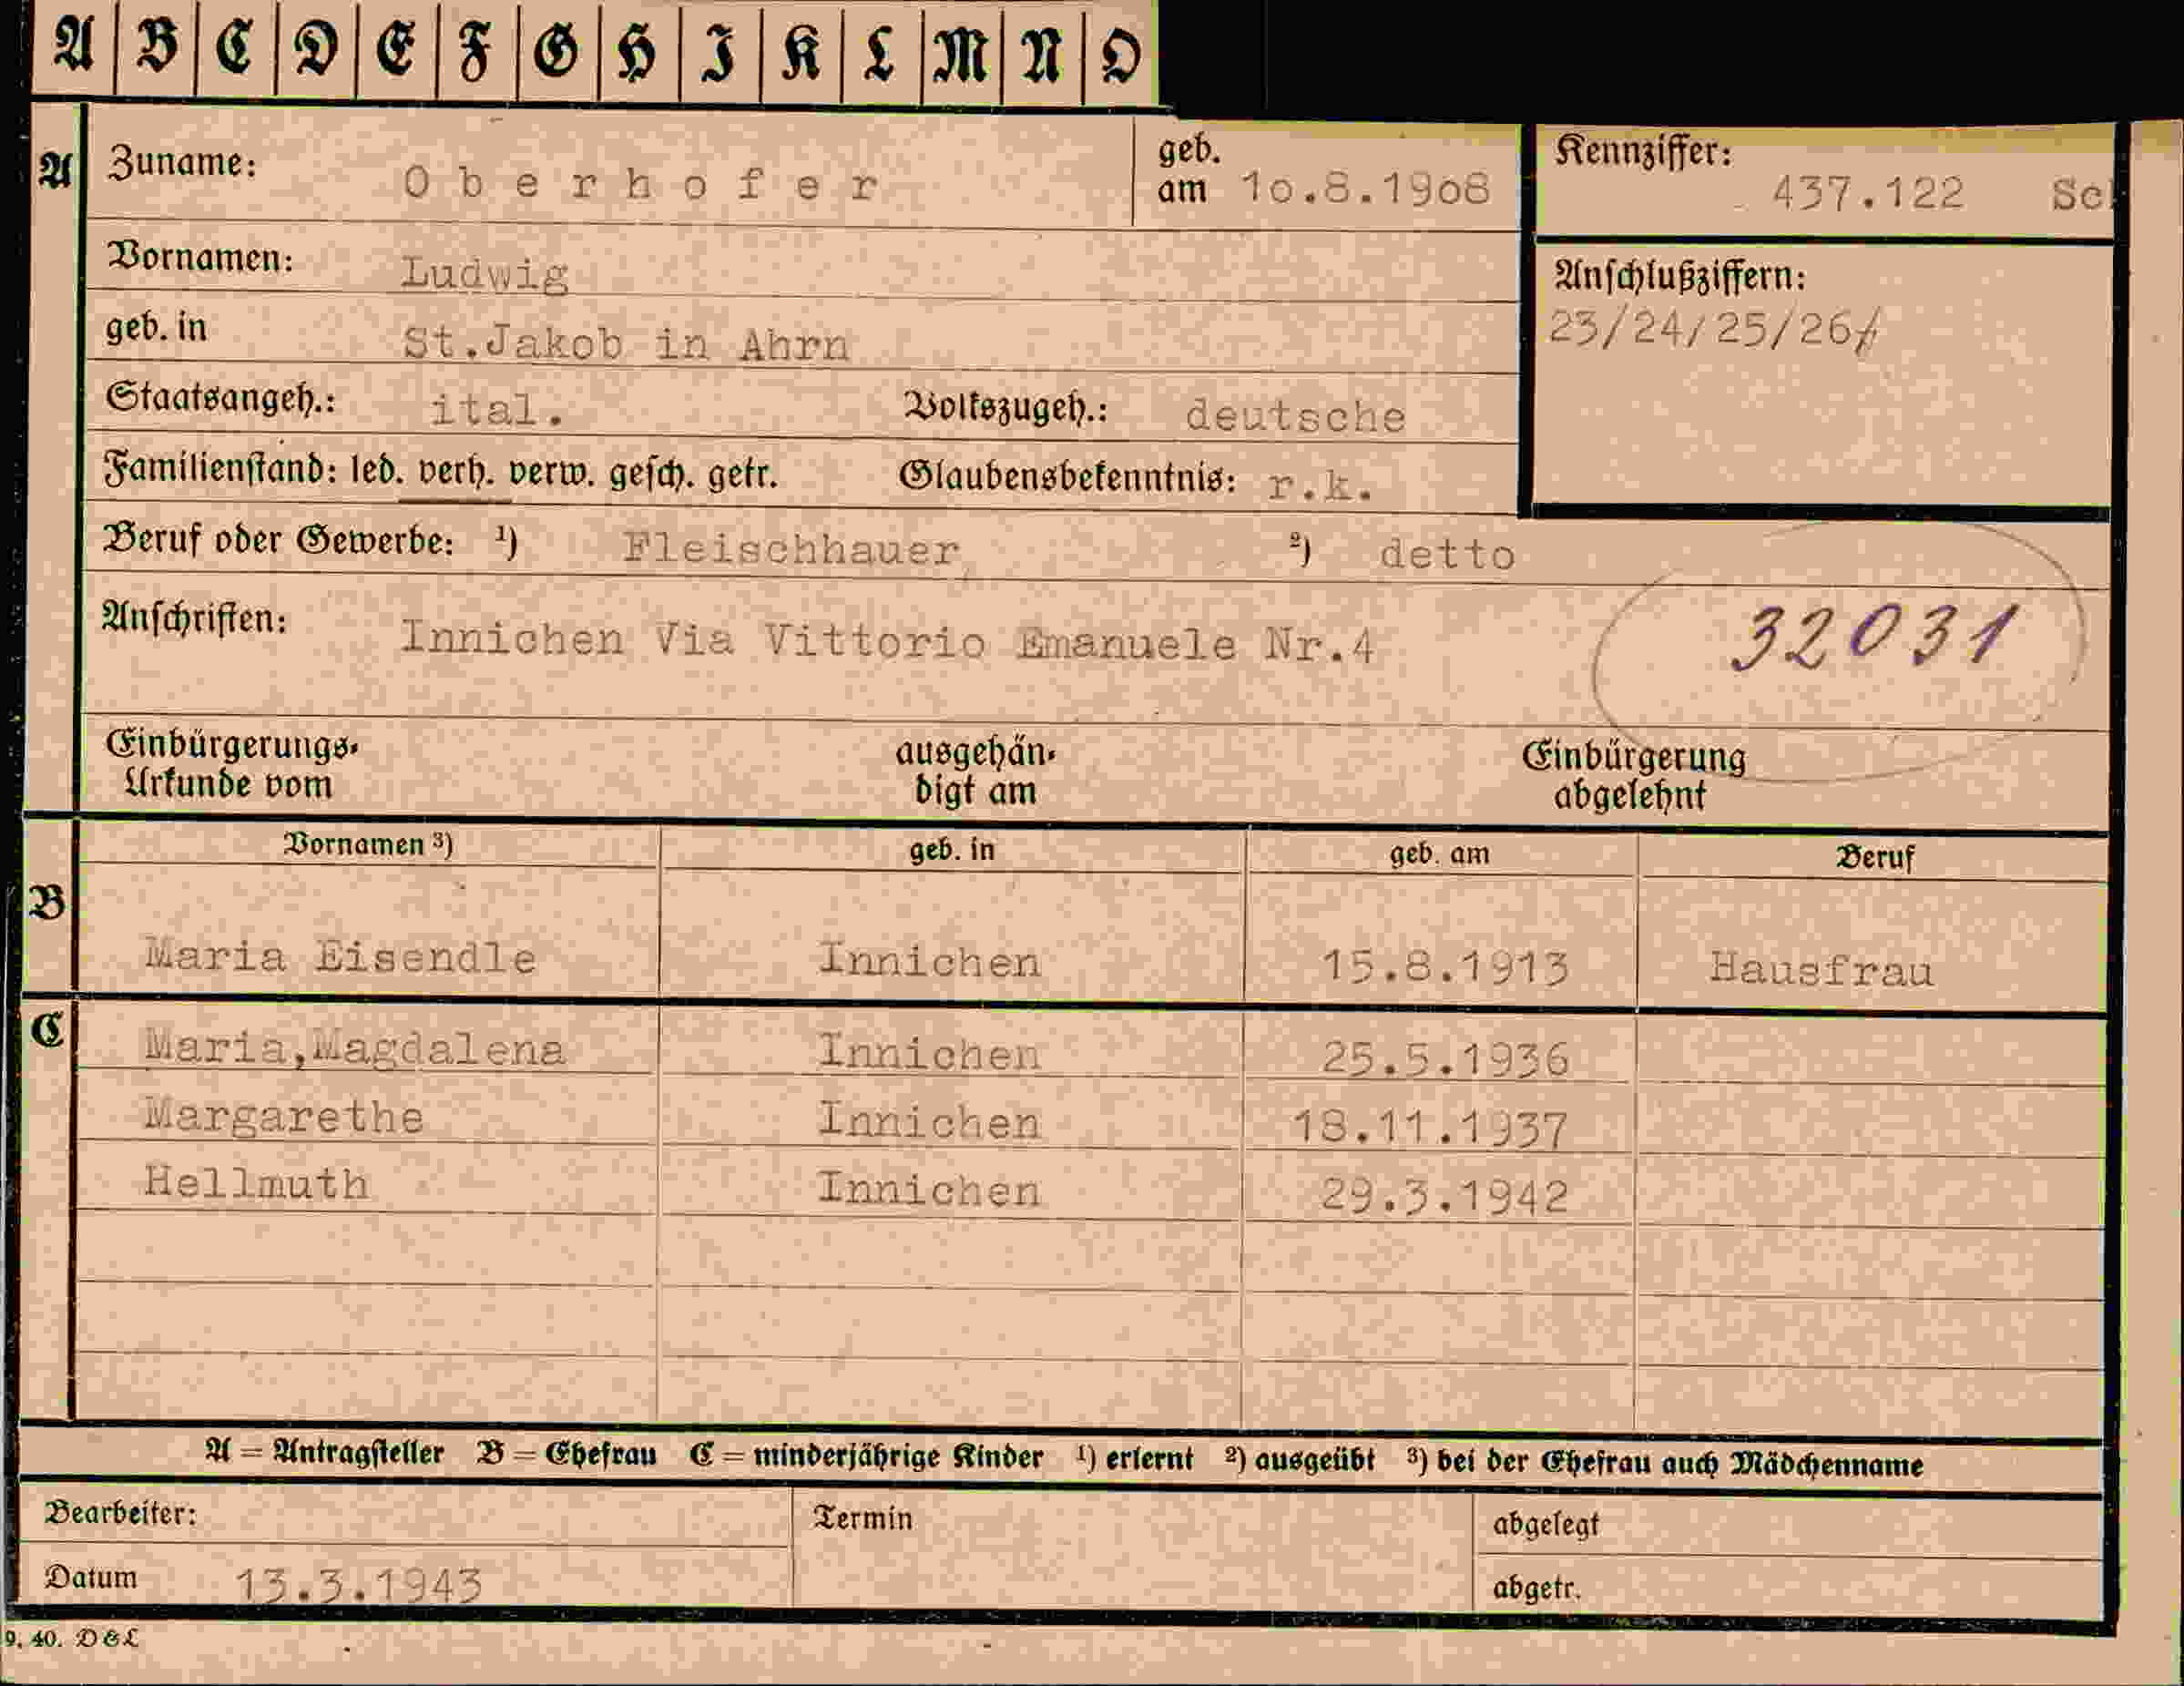 A B C D E F G H I K L M N O
A Zuname: Oberhofer geb. am 10.8.1908
Kennziffer: 437.122 Sch
Vornamen: Ludwig
Anschlußziffern:
23/24/25/26/
geb. in St.Jakob in Ahrn
Staatsangeh.: ital. Volkszugeh.: deutsche
Familienstand: led. verh. verw. gesch. getr. Glaubensbekenntnis: r.k.
Beruf oder Gewerbe: 1) Fleischhauer 2) detto
Anschriften: Innichen Via Vittorio Emanuele Nr.4
32031
Einbürgerungs-Urkunde vom ausgehändigt am Einbürgerung abgelehnt
Vornamen 3) geb. in geb. am Beruf
B Maria Eisendle Innichen 15.8.1913 Hausfrau
C Maria,Magdalena Innichen 25.5.1936
Margarethe Innichen 18.11.1937
Hellmuth Innichen 29.3.1942
A = Antragsteller B = Ehefrau C = minderjährige Kinder 1) erlernt 2) ausgeübt 3) bei der Ehefrau auch Mädchenname
Bearbeiter: Termin abgelegt
Datum 13.3.1943 abgetr.
9. 40. D&L